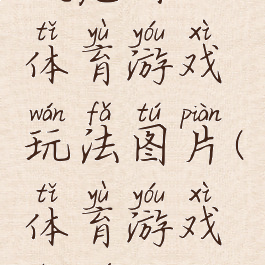 tǐ yù yóu xì
体育游戏
wán fǎ tú piàn
玩法图片(
tǐ yù yóu xì
体育游戏